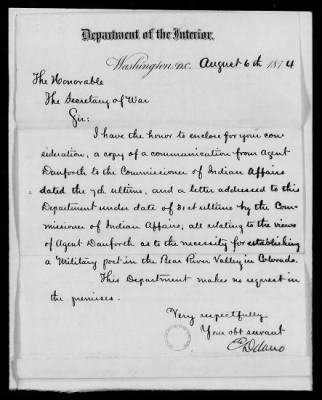 Department of the Interior,
Washington, D.C. August 6th 1874
The Honorable
The Secretary of War
Sir:
I have the honor to enclose for your con-
sideration, a copy of a communication from Agent
Danforth to the Commissioner of Indian Affairs
dated the 7th ultimo, and a letter addressed to this
Department under date of 31st ultimo by the Com-
missioner of Indian Affairs, all relating to the views
of Agent Danforth as to the necessity for establishing
a Military post in the Bear River Valley in Colorado.
This Department makes no request in
the premises.
Very respectfully
Your obt servant
C Delano